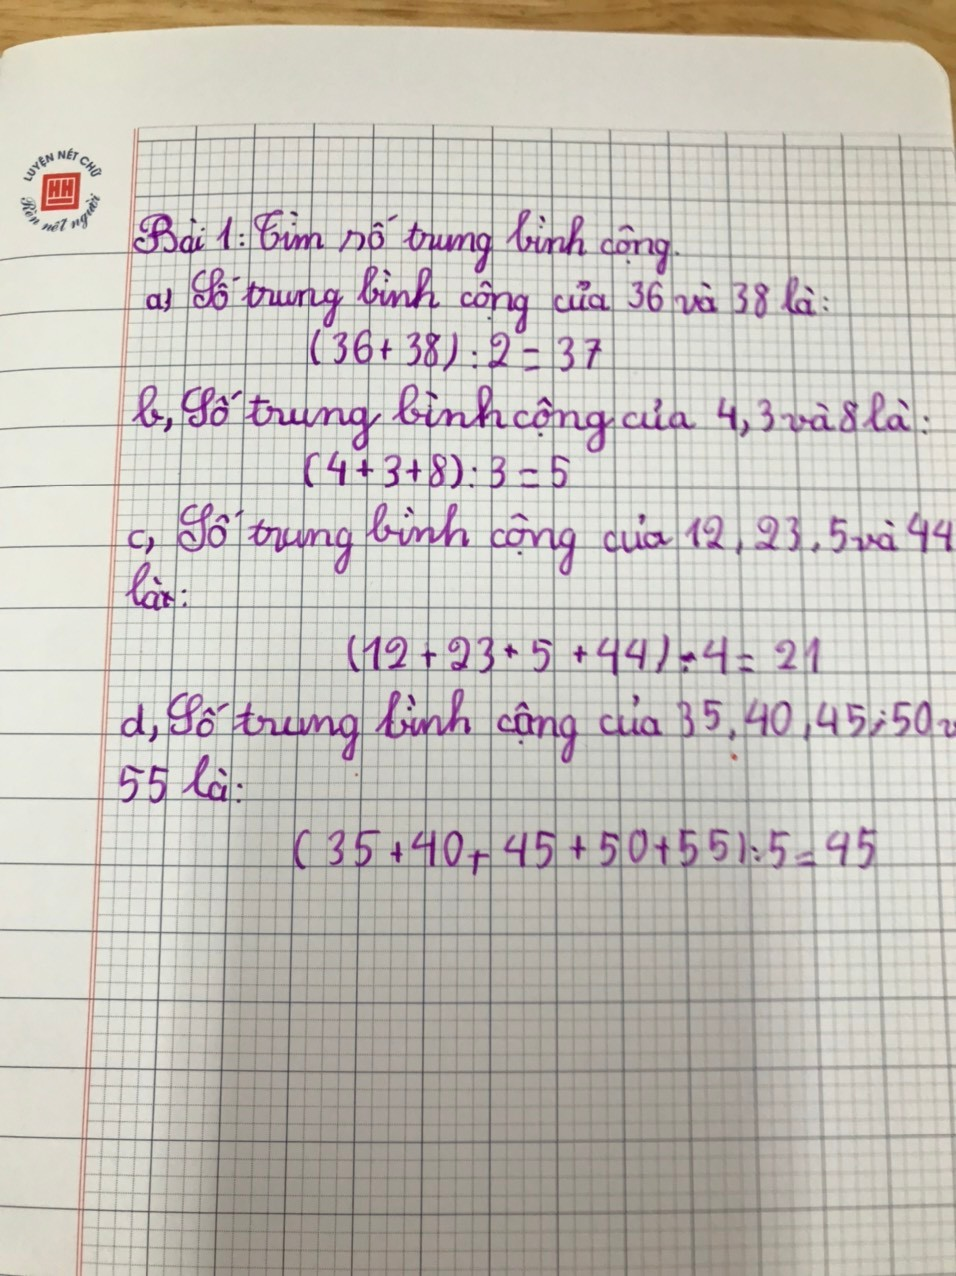 LUYỆN NÉT CHỮ
HH
Rèn nết người
Bài 1: Tìm số trung bình cộng.
a) Số trung bình cộng của 36 và 38 là:
(36 + 38) : 2 = 37
b, Số trung bình cộng của 4, 3 và 8 là:
(4 + 3 + 8) : 3 = 5
c, Số trung bình cộng của 12, 23, 5 và 44
là:
(12 + 23 + 5 + 44) : 4 = 21
d, Số trung bình cộng của 35, 40, 45; 50
55 là:
(35 + 40 + 45 + 50 + 55) : 5 = 45